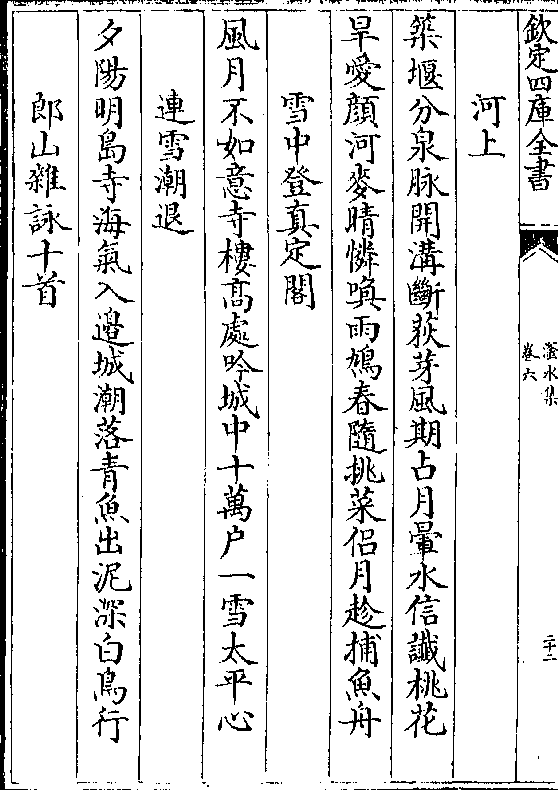 欽定四庫全書
滏水集
卷六
二十二
河上
築堰分泉脉開溝斷荻芽風期占月暈水信讖桃花
旱愛顔河麥晴憐喚雨鳩春隨挑菜侣月趁捕魚舟
雪中登真定閣
風月不如意寺樓髙處吟城中十萬户一雪太平心
連雪潮退
夕陽明島寺海氣入邉城潮落青魚出泥深白鳥行
郎山雜詠十首